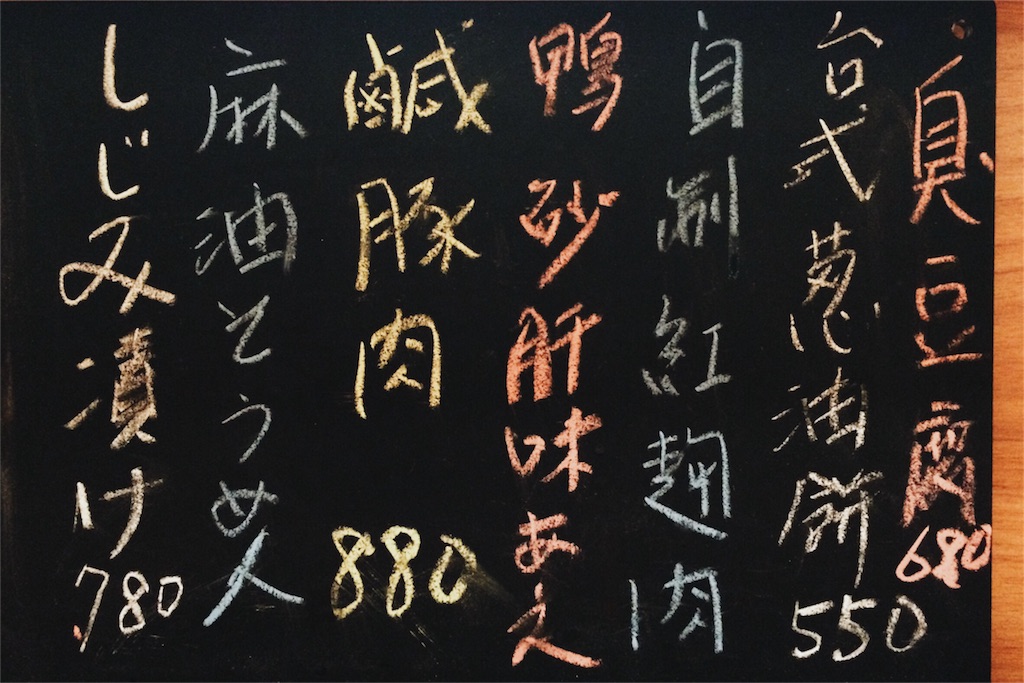 臭豆腐 680
台式葱油餅 550
自制紅麹肉
鴨砂肝味あえ
鹹豚肉 880
麻油そうめん
しじみ漬け 780